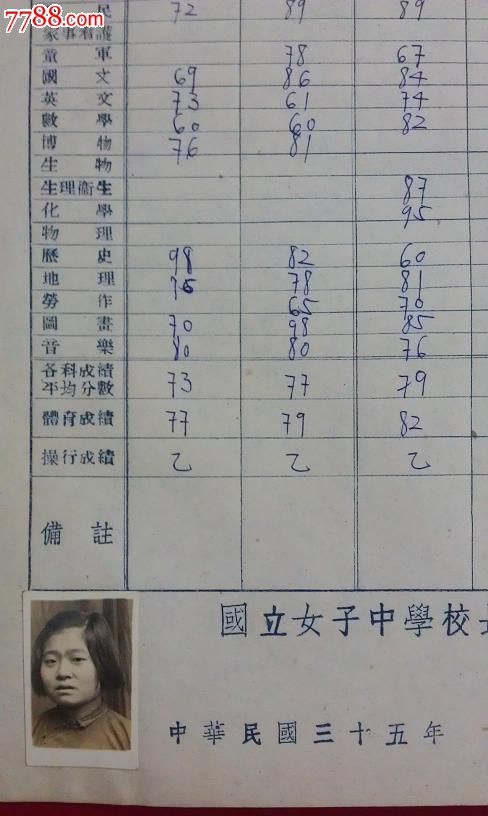 7788.com
民 72 89 89
家事看護
童軍 78 67
國文 69 86 84
英文 73 61 74
數學 60 60 82
博物 76 81
生物
生理衞生 87
化學 95
物理
歷史 98 82 60
地理 75 78 81
勞作 65 70
圖畫 70 98 85
音樂 80 80 76
各科成績
平均分數 73 77 79
體育成績 77 79 82
操行成績 乙 乙 乙
備註
國立女子中學校長
中華民國三十五年